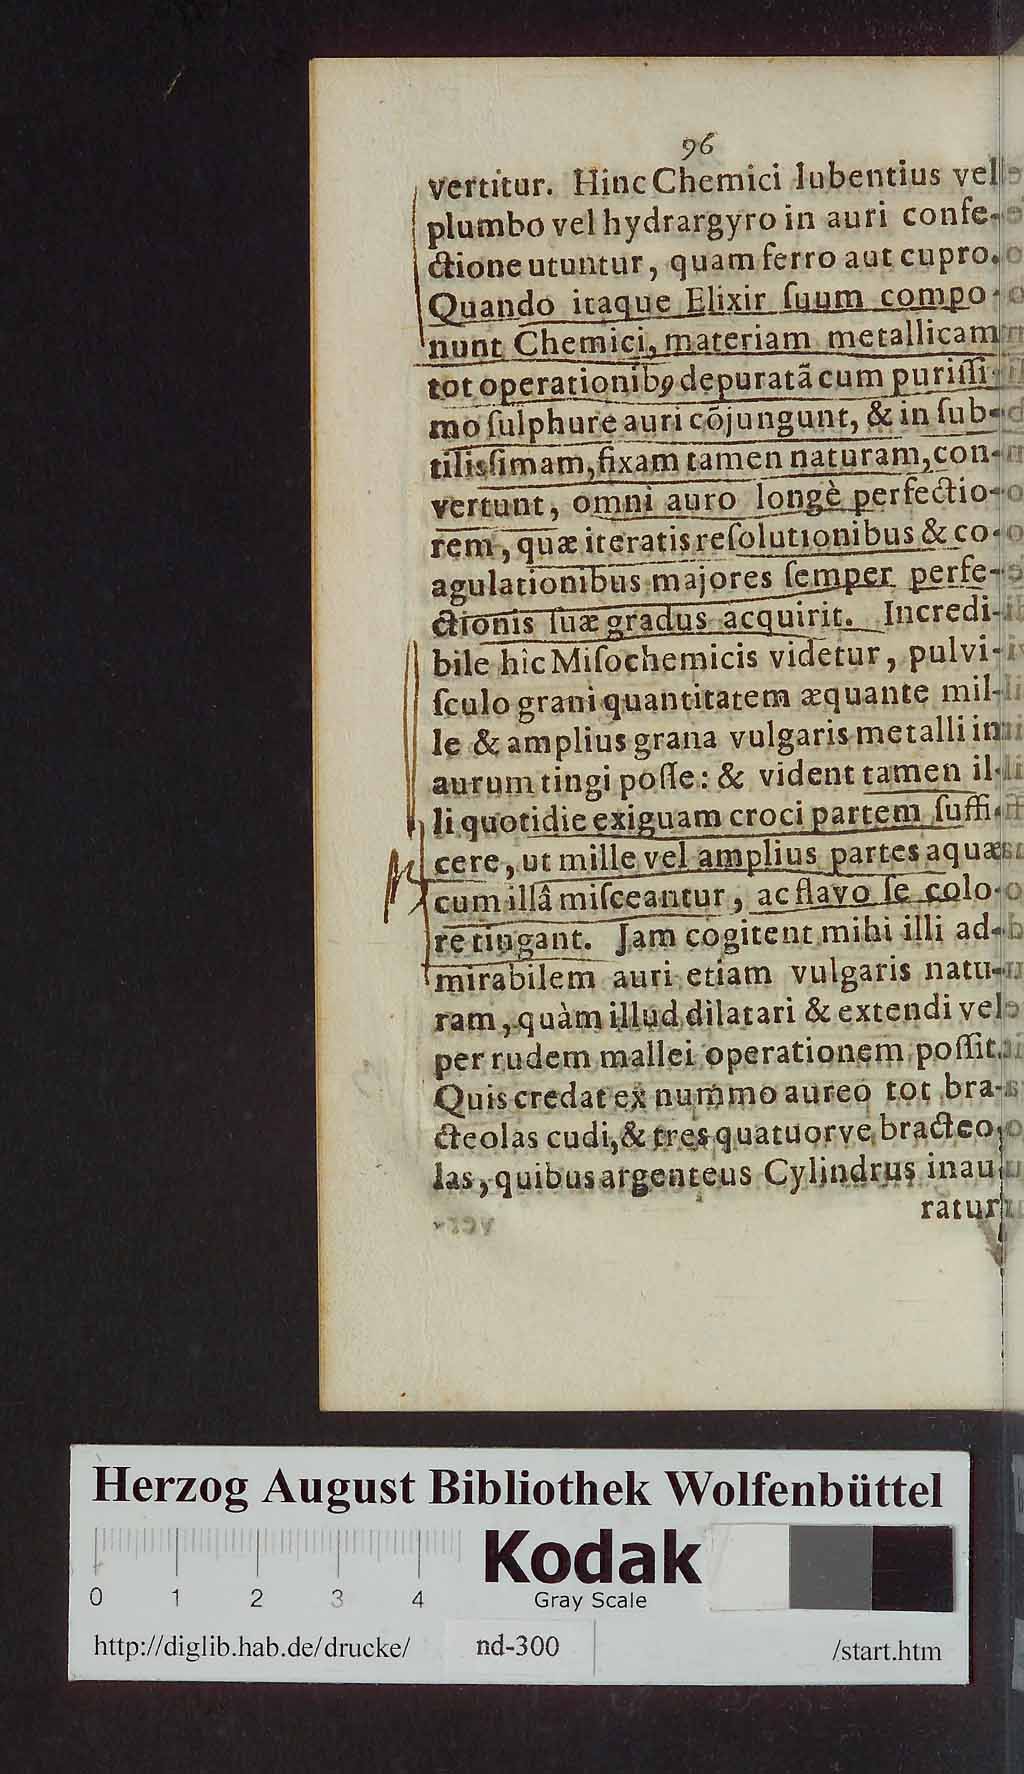 96
vertitur. Hinc Chemici lubentius vel
plumbo vel hydrargyro in auri confe-
ctione utuntur, quam ferro aut cupro.
Quando itaque Elixir ſuum compo-
nunt Chemici, materiam metallicam
tot operationibꝰ depuratã cum puriſſi-
mo ſulphure auri cõjungunt, & in ſub-
tilisſimam, fixam tamen naturam, con-
vertunt, omni auro longè perfectio-
rem, quæ iteratis reſolutionibus & co-
agulationibus majores ſemper perfe-
ctionis ſuæ gradus acquirit. Incredi-
bile hîc Miſochemicis videtur, pulvi-
ſculo grani quantitatem æquante mil-
le & amplius grana vulgaris metalli in
aurum tingi poſſe: & vident tamen il-
li quotidie exiguam croci partem ſuffi-
cere, ut mille vel amplius partes aquæ
cum illâ miſceantur, ac flavo ſe colo-
re tingant. Jam cogitent mihi illi ad-
mirabilem auri etiam vulgaris natu-
ram, quàm illud dilatari & extendi vel
per rudem mallei operationem poſſit.
Quis credat ex nummo aureo tot bra-
cteolas cudi, & tres quatuorve bracteo-
las, quibus argenteus Cylindrus inau-
ratur
Herzog August Bibliothek Wolfenbüttel
Kodak
Gray Scale
0 1 2 3 4
http://diglib.hab.de/drucke/ nd-300 /start.htm